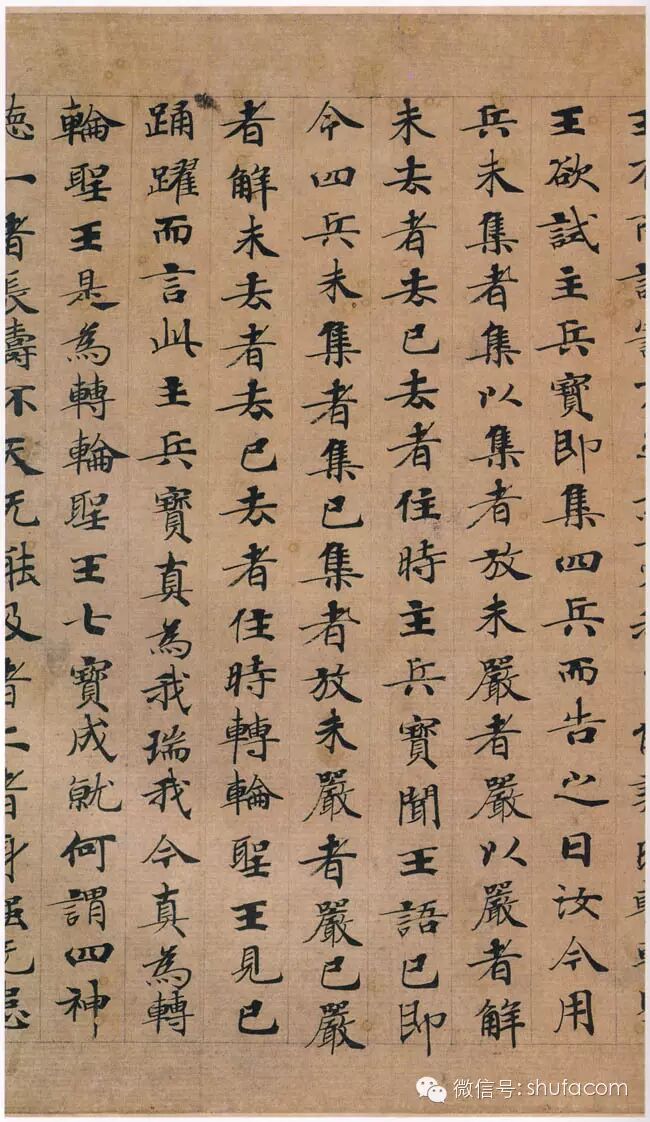 王欲試主兵寶即集四兵而告之曰汝今用
兵未集者集以集者放未嚴者嚴以嚴者解
未去者去已去者住時主兵寶聞王語已即
令四兵未集者集已集者放未嚴者嚴已嚴
者解未去者去已去者住時轉輪聖王見已
踊躍而言此主兵寶真為我瑞我今真為轉
輪聖王是為轉輪聖王七寶成就何謂四神
德一者長壽不夭无能及者二者身強无患
微信号: shufacom